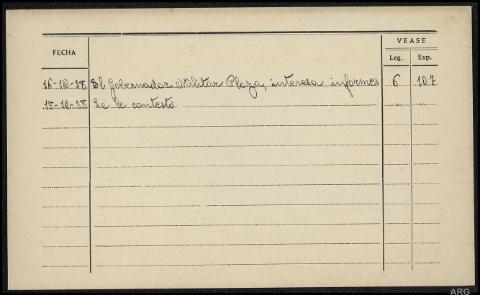 VEASE
FECHA Leg. Exp.
16-10-38 El Gobernador Militar Plaza, interesa informes 6 107
18-10-38 Se le contestó " "
ARG